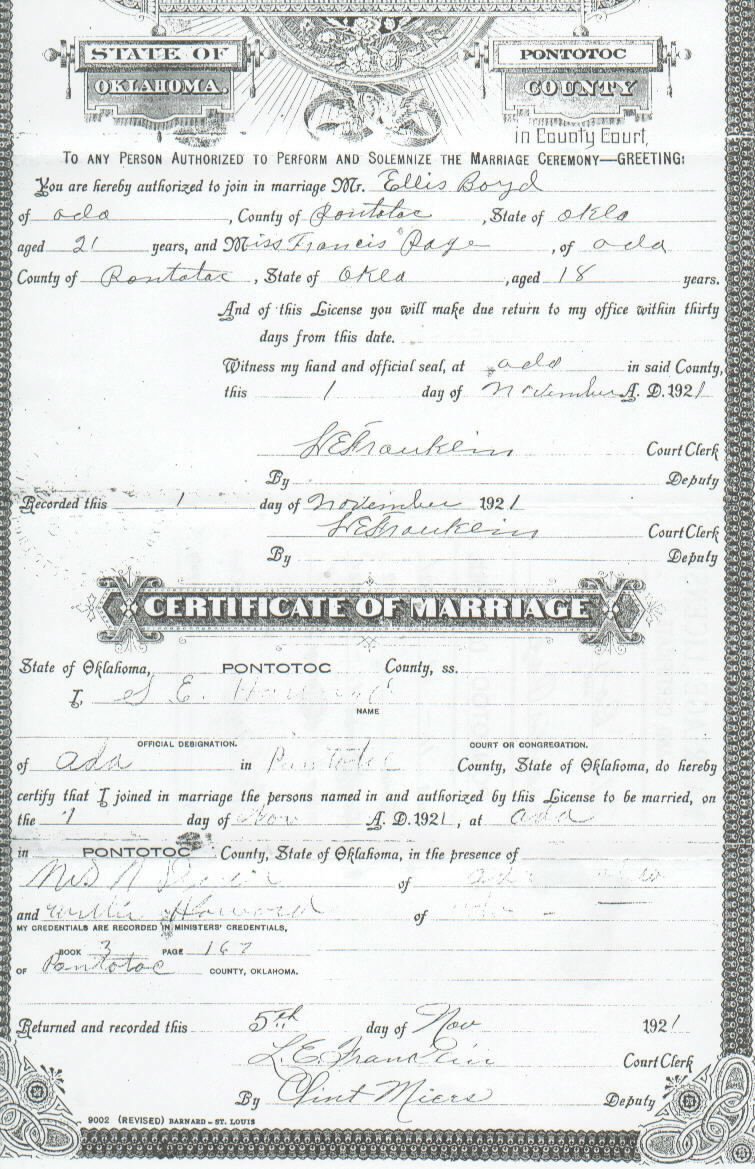 STATE OF OKLAHOMA.
PONTOTOC COUNTY
in County Court,
TO ANY PERSON AUTHORIZED TO PERFORM AND SOLEMNIZE THE MARRIAGE CEREMONY—GREETING:
You are hereby authorized to join in marriage Mr. Ellis Boyd
of ada, County of Pontotoc, State of Okla
aged 21 years, and Miss Francis Page, of ada
County of Pontotoc, State of Okla, aged 18 years.
And of this License you will make due return to my office within thirty
days from this date.
Witness my hand and official seal, at ada in said County,
this 1 day of November A. D. 1921
L E Franklin Court Clerk
By Deputy
Recorded this 1 day of November 1921
L E Franklin Court Clerk
By Deputy
CERTIFICATE OF MARRIAGE
State of Oklahoma, PONTOTOC County, ss.
I, S E
NAME
OFFICIAL DESIGNATION. COURT OR CONGREGATION.
of ada in Pontotoc County, State of Oklahoma, do hereby
certify that I joined in marriage the persons named in and authorized by this License to be married, on
the 1 day of Nov A. D. 1921, at ada
in PONTOTOC County, State of Oklahoma, in the presence of
Mrs of
and Willie Howard of
MY CREDENTIALS ARE RECORDED IN MINISTERS' CREDENTIALS,
BOOK 3 PAGE 167
OF Pontotoc COUNTY, OKLAHOMA.
Returned and recorded this 5th day of Nov 1921
L. E. Franklin Court Clerk
By Clint Miers Deputy
9002 (REVISED) BARNARD - ST. LOUIS